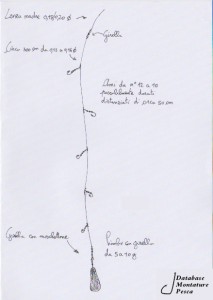 Lenza madre 0,18/0,20 Ø
Girella
Ami da n° 12 a 10
possibilmente dorati
distanziati di circa 50 cm
Girella con moschettone
Piombo con girella
da 5 a 10 g
Database
Montature
Pesca